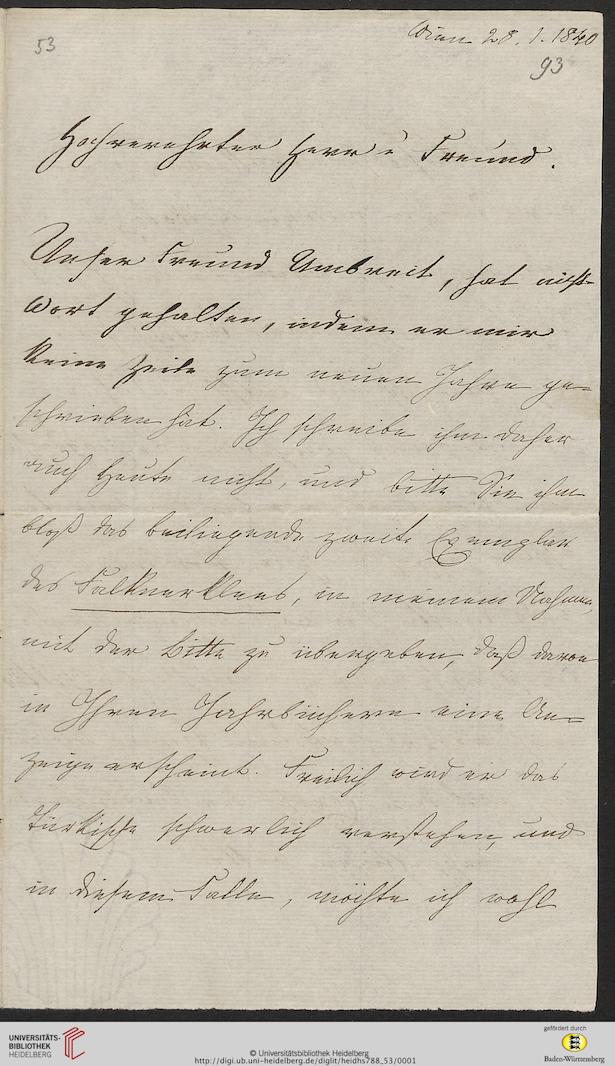 Wien 28. 1. 1840
53
93
Hochverehrter Herr u Freund.
Unser Freund Umbreit, hat nicht
Wort gehalten, indem er mir
keine Zeile zum neuen Jahre ge=
schrieben hat. Ich schreibe ihm daher
auch heute nicht, und bitte Sie ihm
bloß das beiliegende zweite Exemplar
des Falknerklees, in meinem Nahmen,
mit der Bitte zu übergeben, daß davon
in Ihren Jahrbüchern eine An=
zeige erscheint. Freilich wird er das
Türkische schwerlich verstehen, und
in diesem Falle, möchte ich wohl
UNIVERSITÄTS-
BIBLIOTHEK
HEIDELBERG
© Universitätsbibliothek Heidelberg
http://digi.ub.uni-heidelberg.de/diglit/heidhs788_53/0001
gefördert durch
Baden-Württemberg